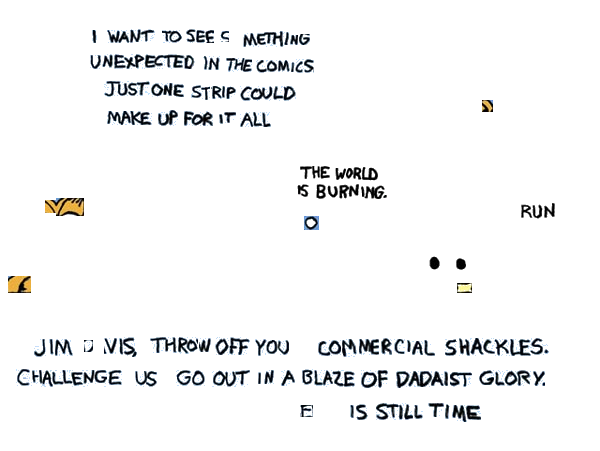 I WANT TO SEE S METHING
UNEXPECTED IN THE COMICS
JUST ONE STRIP COULD
MAKE UP FOR IT ALL
THE WORLD
IS BURNING.
RUN
JIM D VIS, THROW OFF YOU COMMERCIAL SHACKLES.
CHALLENGE US GO OUT IN A BLAZE OF DADAIST GLORY.
E IS STILL TIME